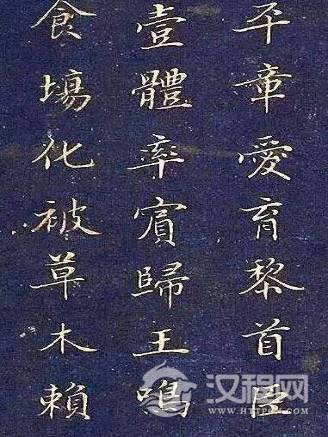 平章愛育黎首臣
壹體率賓歸王鳴
食場化被草木賴
汉程网
HTTPCN.COM